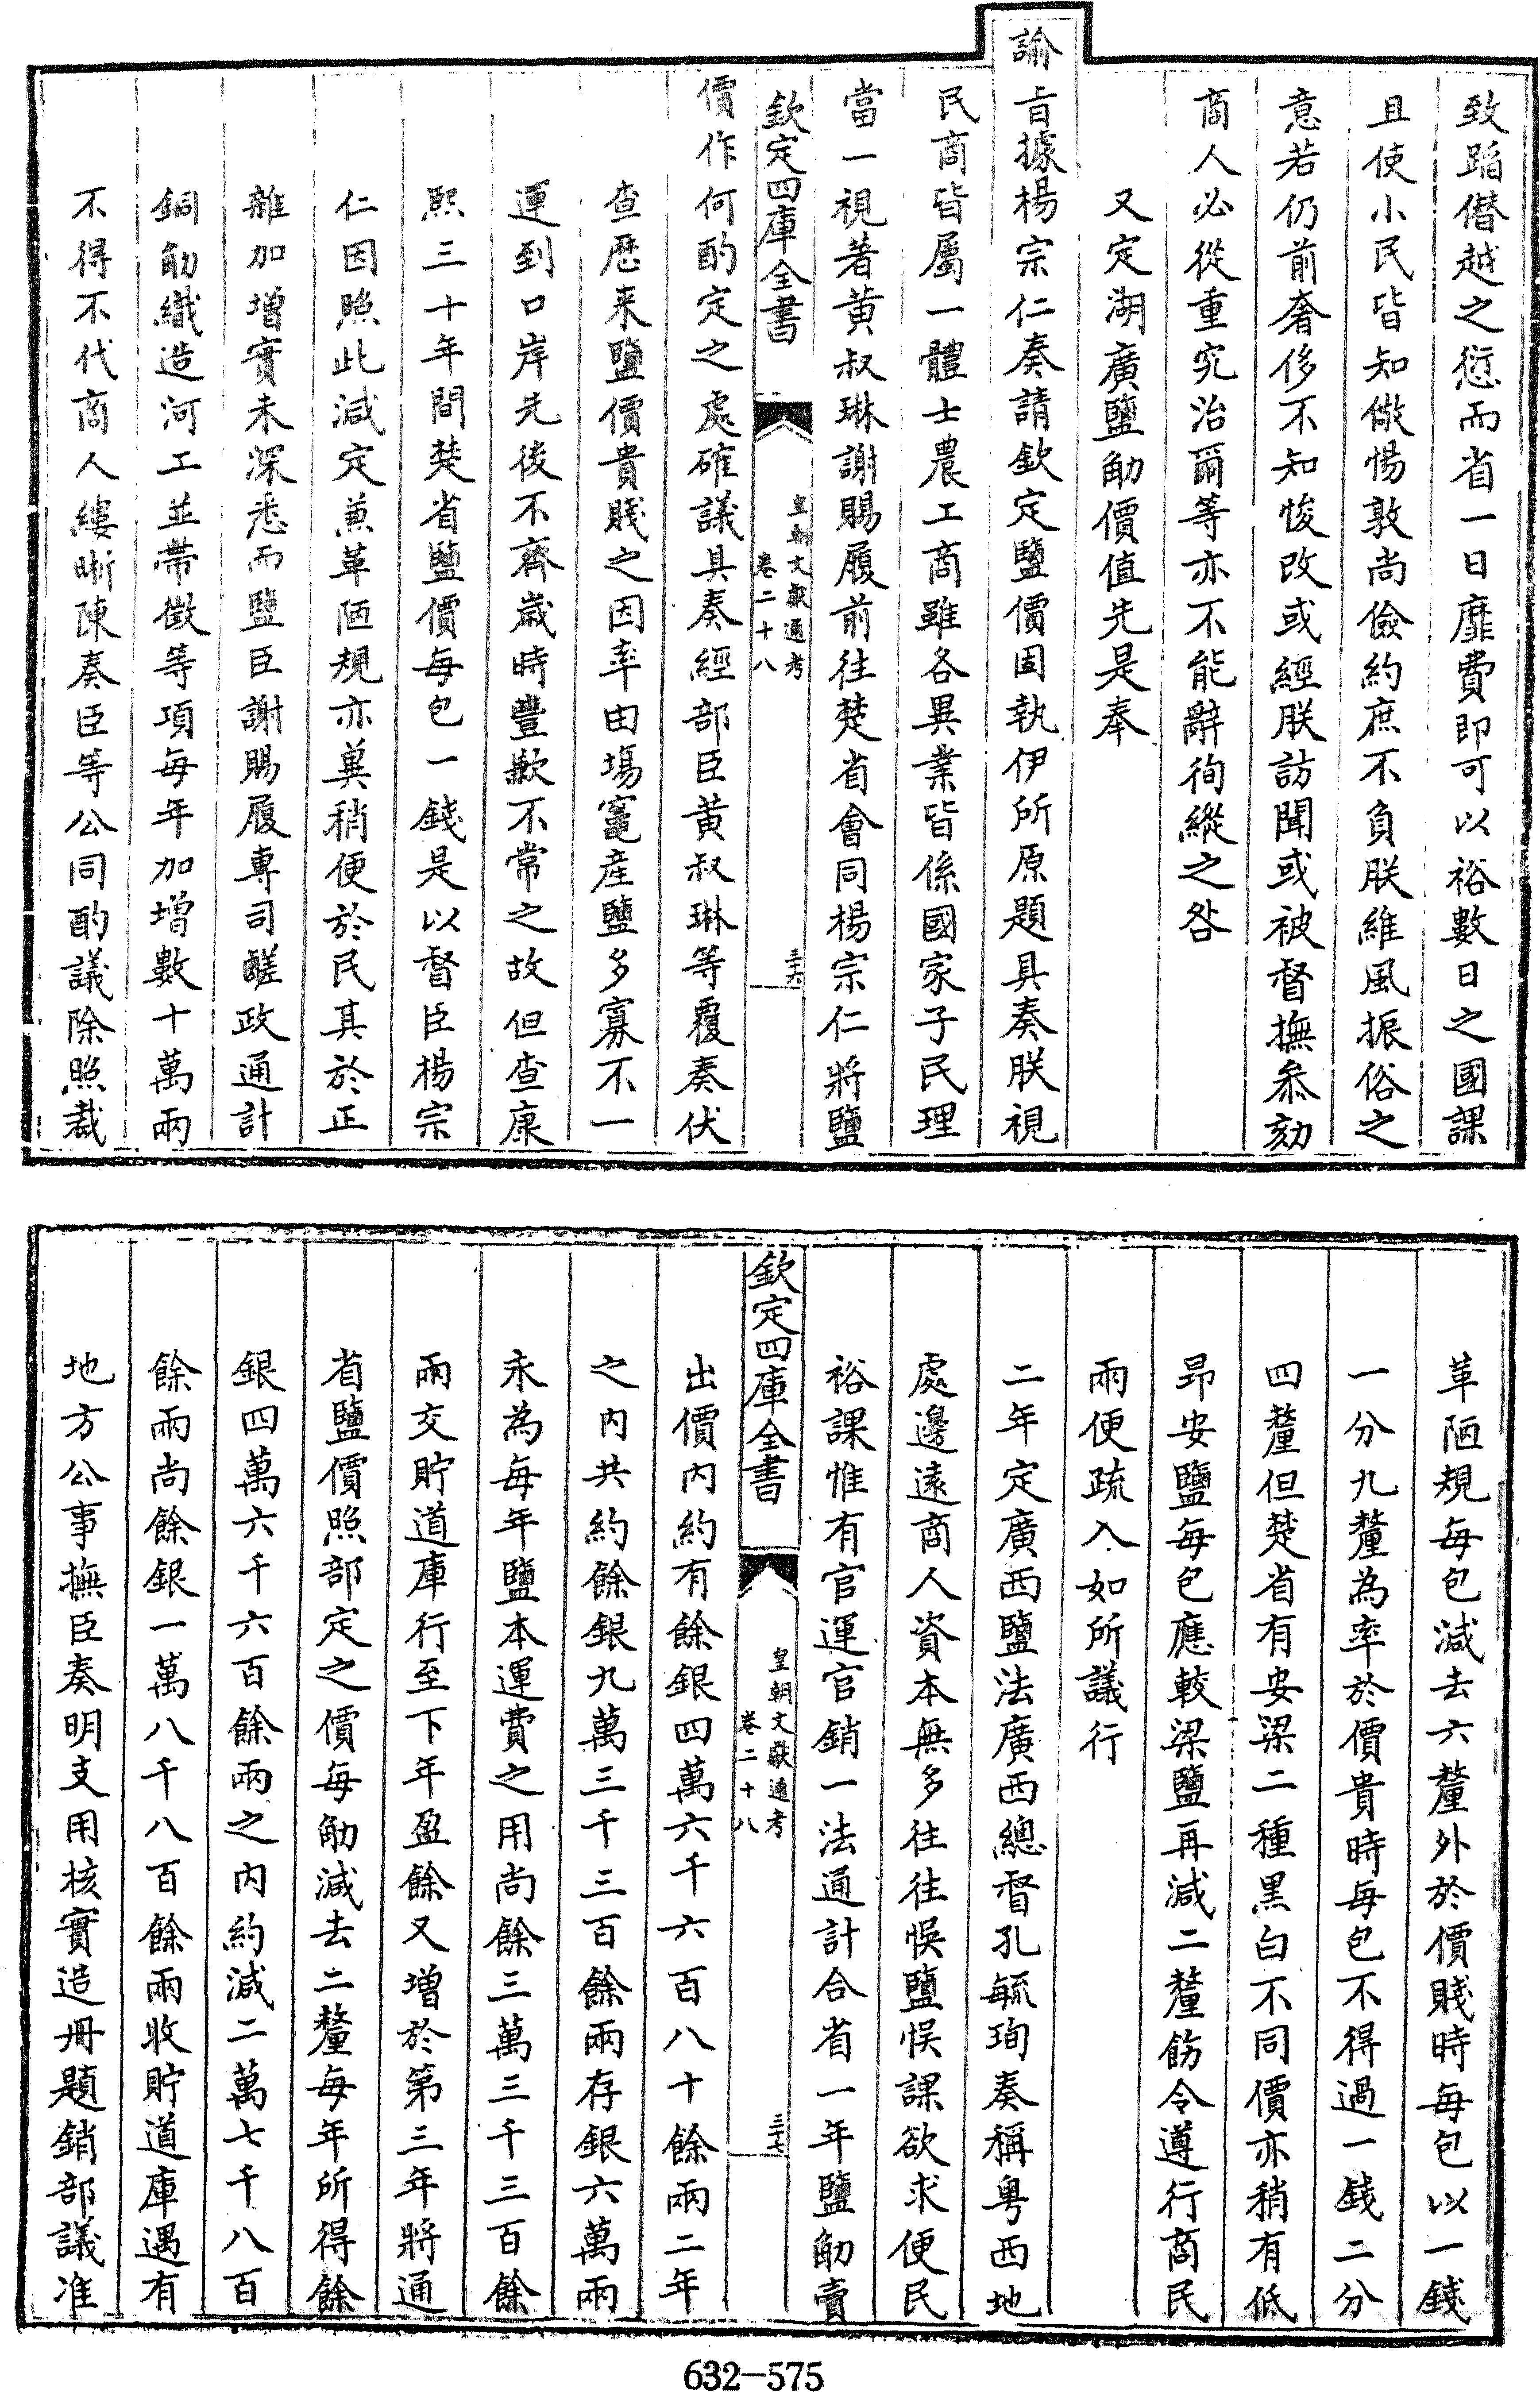 致蹈僭越之愆而省一日靡費即可以裕數日之國課
且使小民皆知儆惕敦尚儉約庶不負朕維風振俗之
意若仍前奢侈不知悛改或經朕訪聞或被督撫叅劾
商人必從重究治爾等亦不能辭徇縱之咎
又定湖廣鹽觔價值先是奉
諭旨據楊宗仁奏請欽定鹽價固執伊所原題具奏朕視
民商皆屬一體士農工商雖各異業皆係國家子民理
當一視著黃叔琳謝賜履前往楚省會同楊宗仁將鹽
欽定四庫全書
皇朝文獻通考
卷二十八
三十六
價作何酌定之處確議具奏經部臣黃叔琳等覆奏伏
查歷来鹽價貴賤之因率由塲竈産鹽多寡不一
運到口岸先後不齊嵗時豐歉不常之故但查康
熙三十年間楚省鹽價每包一錢是以督臣楊宗
仁因照此減定兼革陋規亦冀稍便於民其於正
雜加增實未深悉而鹽臣謝賜履專司鹺政通計
銅觔織造河工並帶徵等項每年加增數十萬兩
不得不代商人縷晰陳奏臣等公同酌議除照裁
革陋規每包減去六釐外於價賤時每包以一錢
一分九釐為率於價貴時每包不得過一錢二分
四釐但楚省有安梁二種黑白不同價亦稍有低
昻安鹽每包應較梁鹽再減二釐飭令遵行商民
兩便疏入如所議行
二年定廣西鹽法廣西總督孔毓珣奏稱粤西地
處邊逺商人資本無多往往悞鹽悞課欲求便民
裕課惟有官運官銷一法通計合省一年鹽觔賣
欽定四庫全書
皇朝文獻通考
卷二十八
三十七
出價内約有餘銀四萬六千六百八十餘兩二年
之内共約餘銀九萬三千三百餘兩存銀六萬兩
永為每年鹽本運費之用尚餘三萬三千三百餘
兩交貯道庫行至下年盈餘又增於第三年將通
省鹽價照部定之價每觔減去二釐每年所得餘
銀四萬六千六百餘兩之内約減二萬七千八百
餘兩尚餘銀一萬八千八百餘兩收貯道庫遇有
地方公事撫臣奏明支用核實造冊題銷部議准
632—575